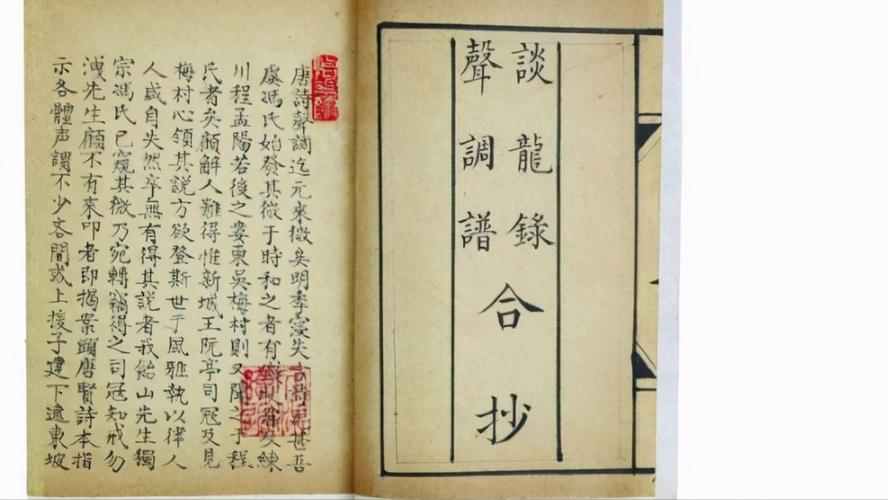 談龍錄
聲調譜
合抄
唐詩聲調迄元來微矣明季寖失古詩尤甚吾
虞馮氏始發其微于時和之者有錢牧齋矣練
川程孟陽若後之婁東吳梅村則又聞之于程
氏者矣顧解人難得惟新城王阮亭司寇及見
梅村心領其說方欲登斯世于風雅執以律人
人咸自失然卒無有得其說者我飴山先生獨
宗馮氏已窺其微乃宛轉竊得之司寇知戒勿
洩先生顧不有來叩者即揭案頭唐賢詩本指
示各體声謂不少吝間或上援子建下逮東坡